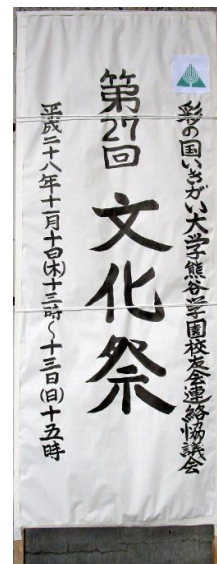 彩の国いきがい大学熊谷学園校友会連絡協議会
第27回 文化祭
平成二十八年十一月十日(木)十三時～十三日(日)十五時